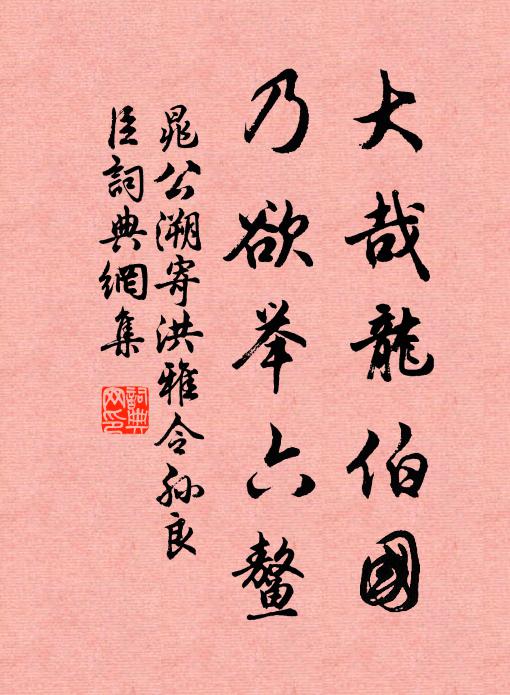 大哉龍伯國
乃欲举六鰲
晁公溯寄洪雅令孙良
臣詞典網集
詞典
网印